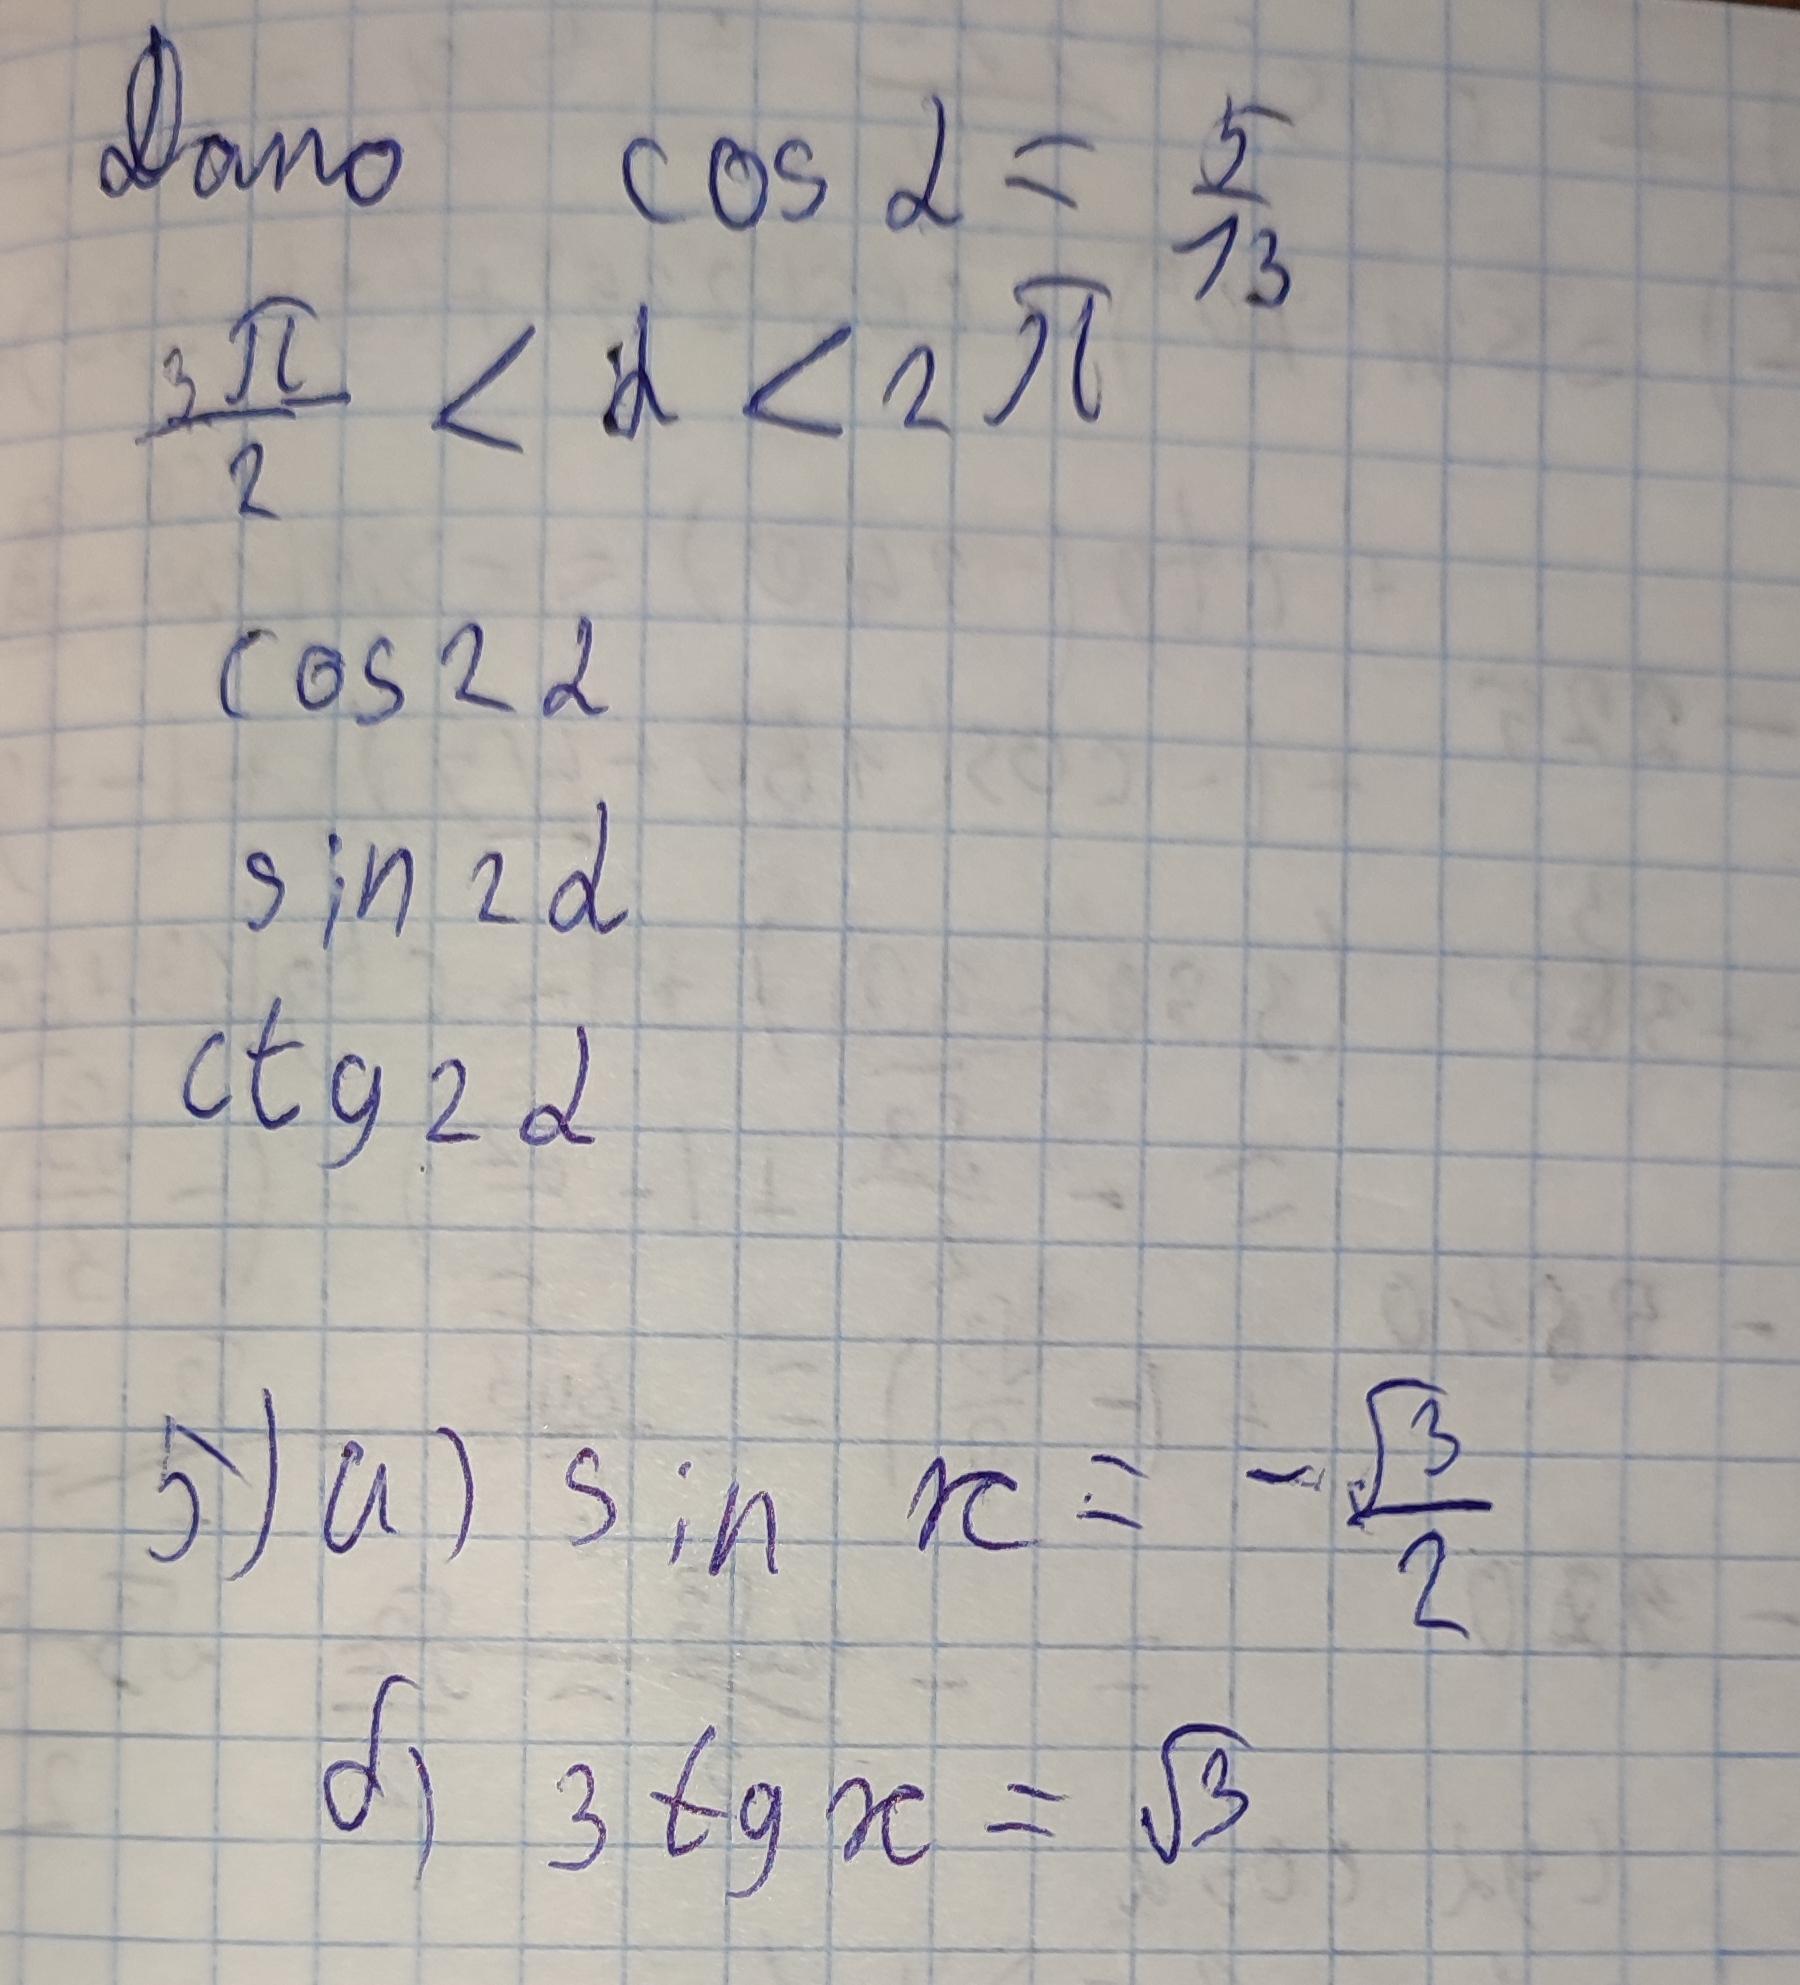 Дано cos α = 5/13
3π/2 < α < 2π
cos 2α
sin 2α
ctg 2α
5) а) sin x = -√3/2
б) 3 tg x = √3